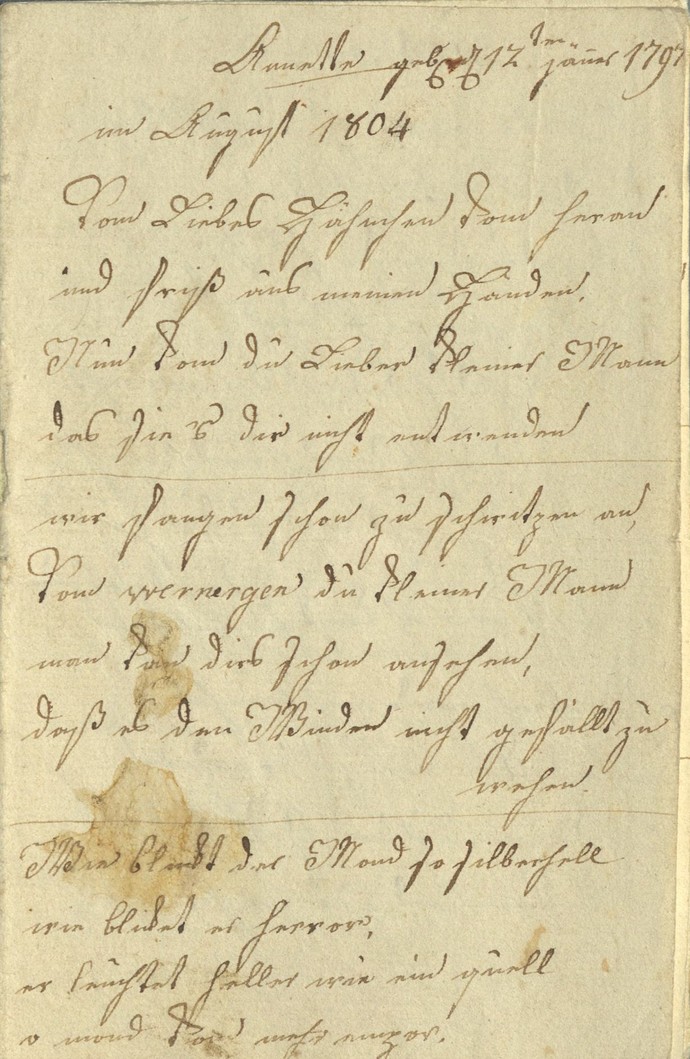 Annette geb 12ten jänner 1797
im August 1804
Kom Liebes Hähnchen kom heran
und friß aus meinen Händen,
Nun kom du Lieber kleiner Mann
das sie's dir nicht entwenden
wir fangen schon zu schwitzen an,
Kom wernergen du kleiner Mann
man kan dirs schon ansehen,
daß es den Winden nicht gefällt zu
wehen.
Wie blickt der Mond so silberhell
wie blicket er hervor,
er leuchtet heller wie ein quell
o mond kom mehr empor.